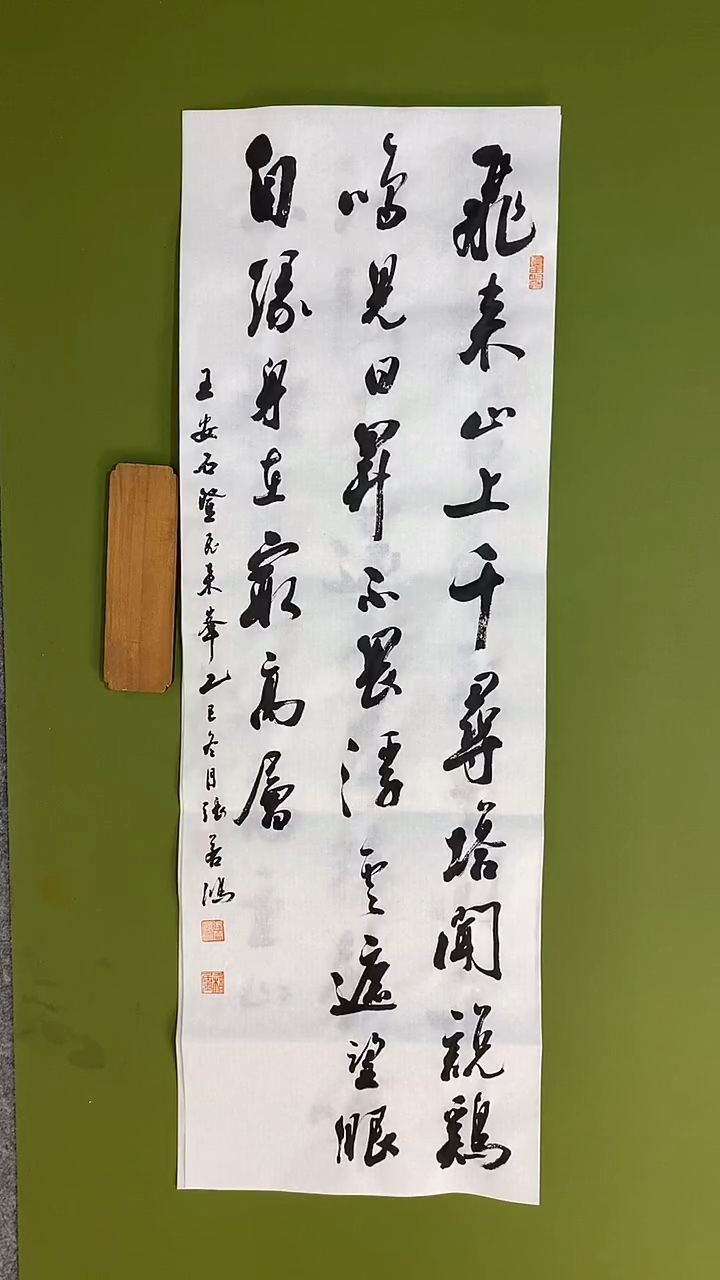 飛来山上千尋塔聞説鷄
鳴見日昇不畏浮雲遮望眼
自緣身在最高層
王安石登飛来峯乙巳冬月張若鴻